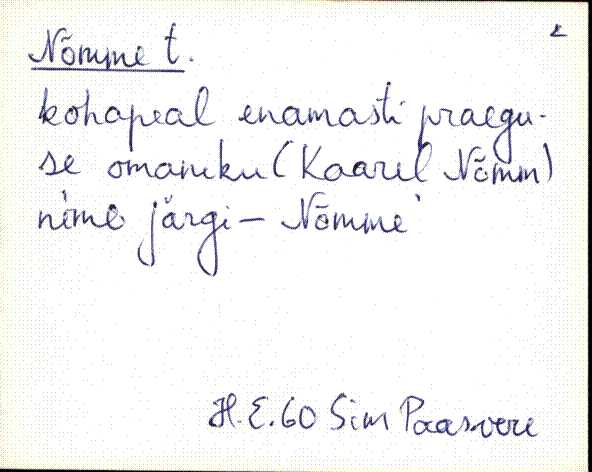 2
Nõmme t.
kohapeal enamasti praegu-
se omaniku (Kaarel Nõmm)
nime järgi – Nõmme`
H. E. 60 Sim Paasvere